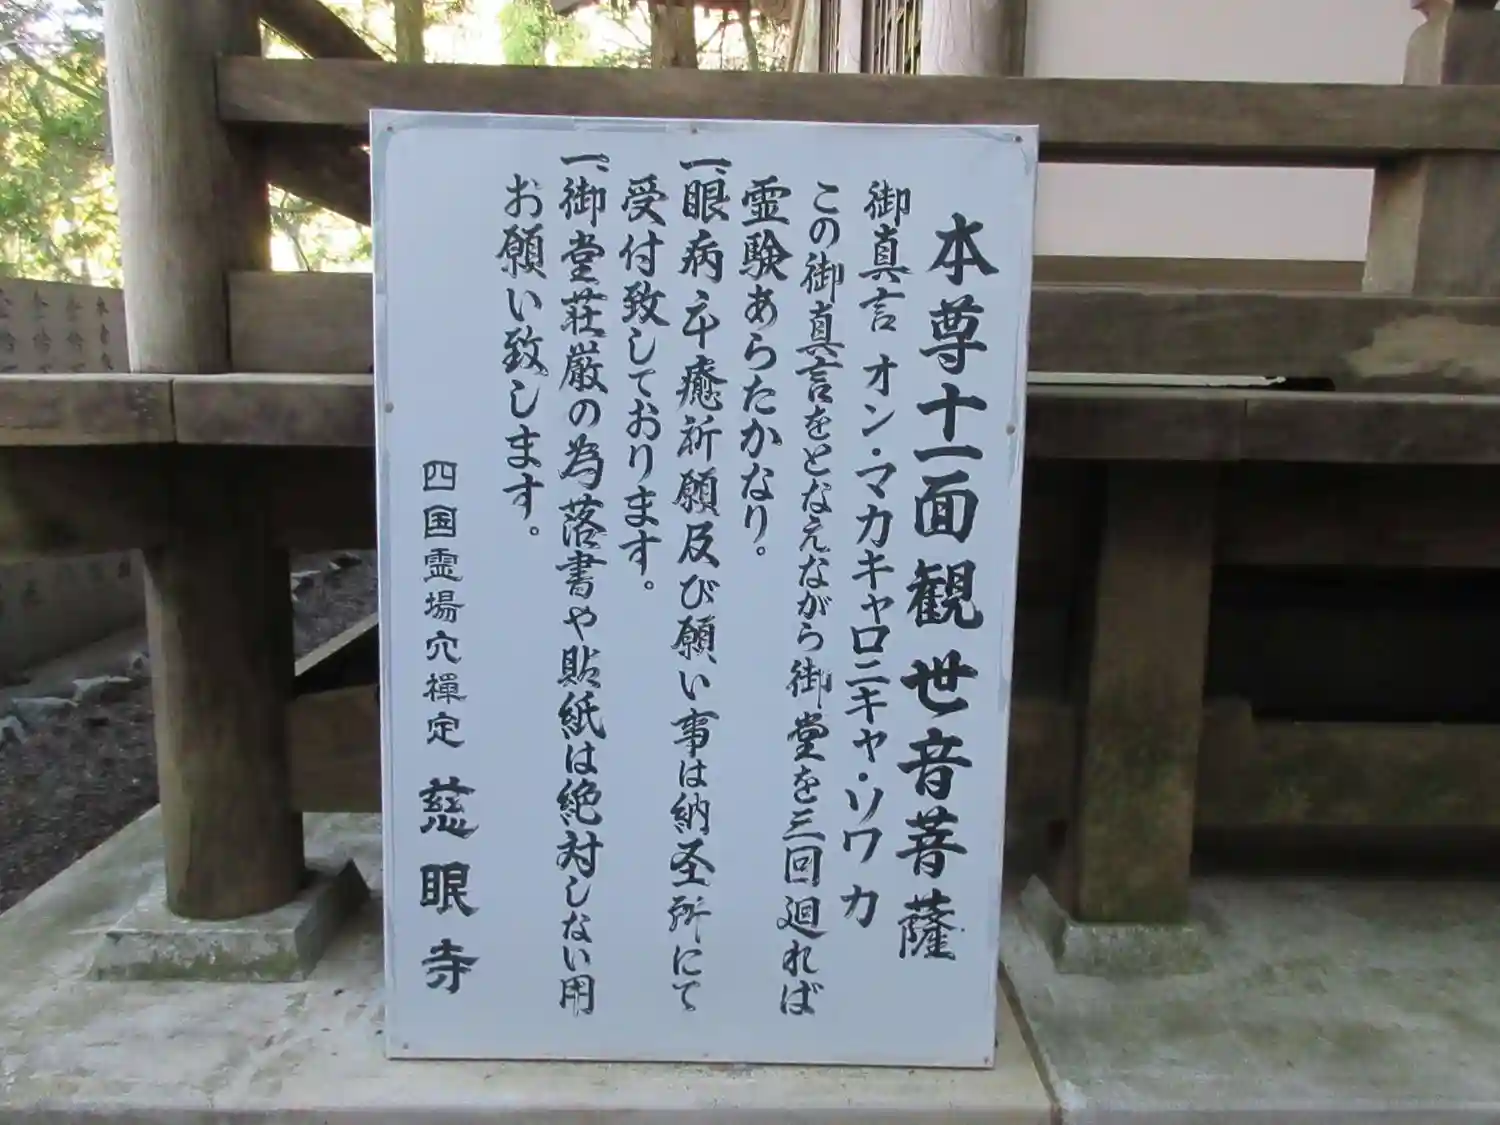 本尊十一面観世音菩薩
御真言 オン・マカキャロニキャ・ソワカ
この御真言をとなえながら御堂を三回廻れば
霊験あらたかなり。
一、眼病平癒祈願及び願い事は納経所にて
受付致しております。
一、御堂荘厳の為落書や貼紙は絶対しない用
お願い致します。
四国霊場穴禪定 慈眼寺